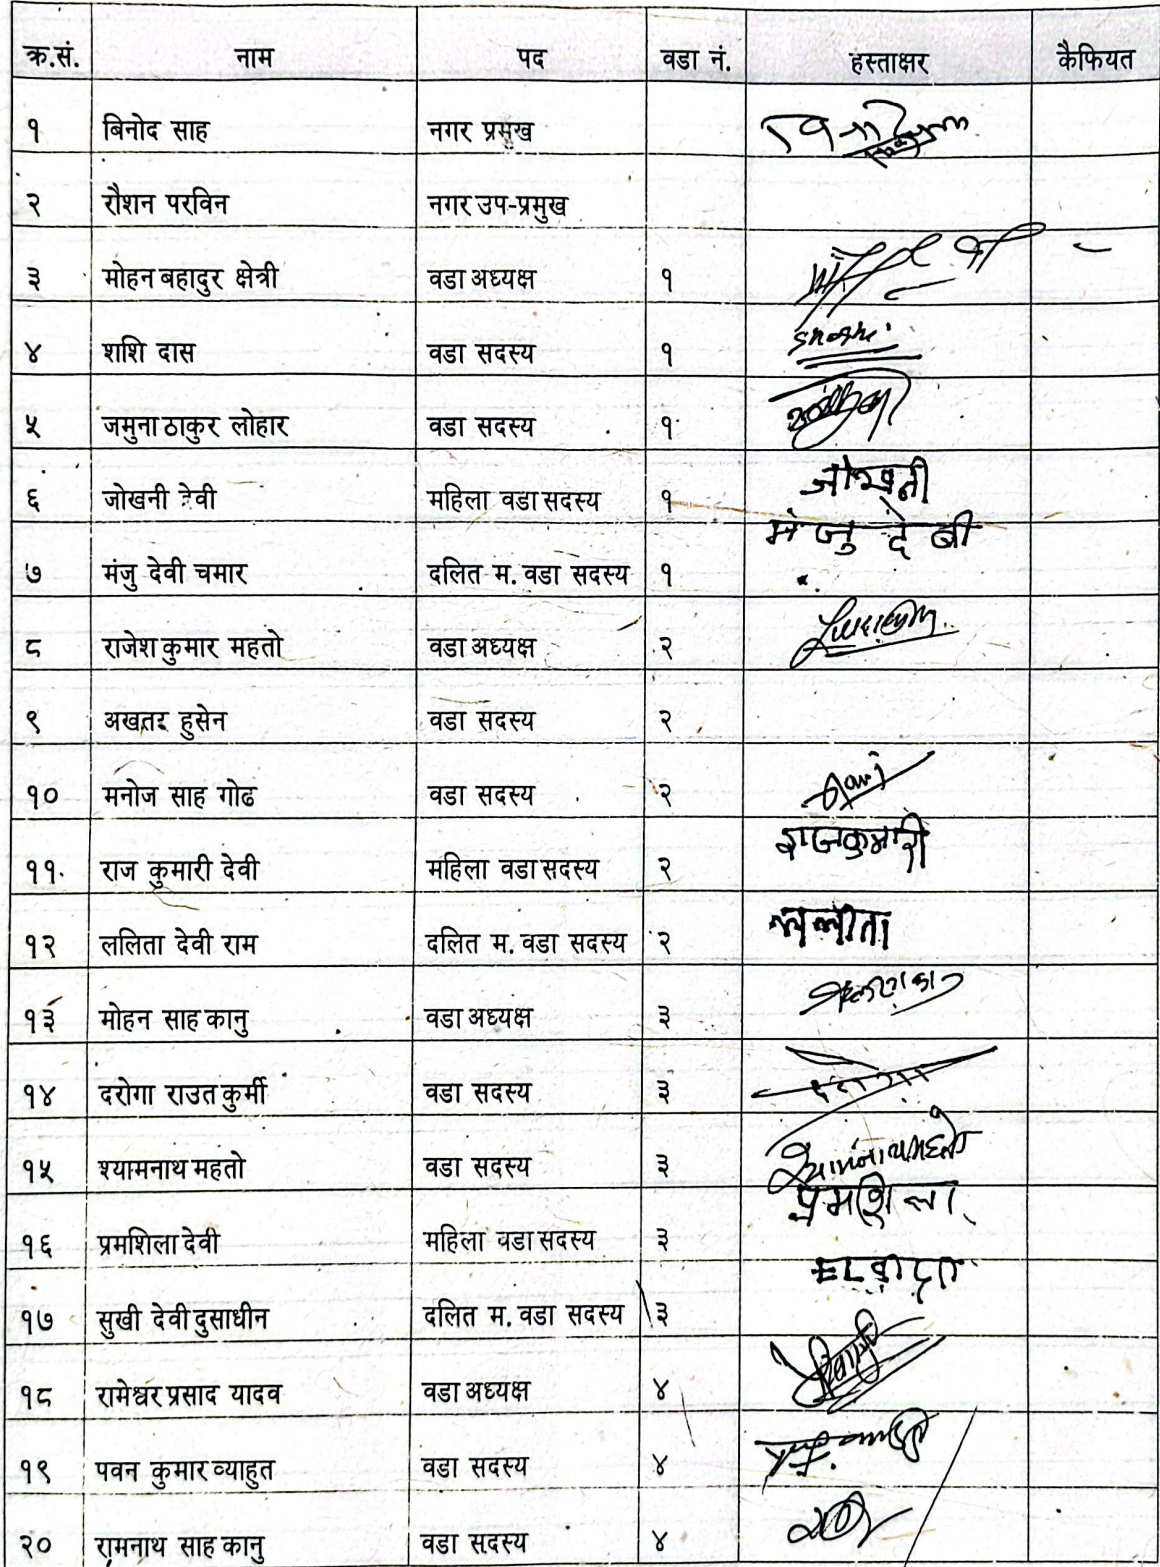 क्र.सं. नाम पद वडा नं. हस्ताक्षर कैफियत
१ बिनोद साह नगर प्रमुख
२ रौशन परविन नगर उप-प्रमुख
३ मोहन बहादुर क्षेत्री वडा अध्यक्ष १
४ शशि दास वडा सदस्य १
५ जमुना ठाकुर लोहार वडा सदस्य १
६ जोखनी देवी महिला वडा सदस्य १ जोखनी
मंजु देवी
७ मंजु देवी चमार दलित म. वडा सदस्य १
८ राजेश कुमार महतो वडा अध्यक्ष २
९ अखतर हुसेन वडा सदस्य २
१० मनोज साह गोढ वडा सदस्य २
११ राज कुमारी देवी महिला वडा सदस्य २ राजकुमारी
१२ ललिता देवी राम दलित म. वडा सदस्य २ ललीता
१३ मोहन साह कानु वडा अध्यक्ष ३
१४ दरोगा राउत कुर्मी वडा सदस्य ३
१५ श्यामनाथ महतो वडा सदस्य ३ श्यामनाथ महतो
प्रमशिला
१६ प्रमशिला देवी महिला वडा सदस्य ३
१७ सुखी देवी दुसाधीन दलित म. वडा सदस्य ३
१८ रामेश्वर प्रसाद यादव वडा अध्यक्ष ४
१९ पवन कुमार व्याहुत वडा सदस्य ४
२० रामनाथ साह कानु वडा सदस्य ४